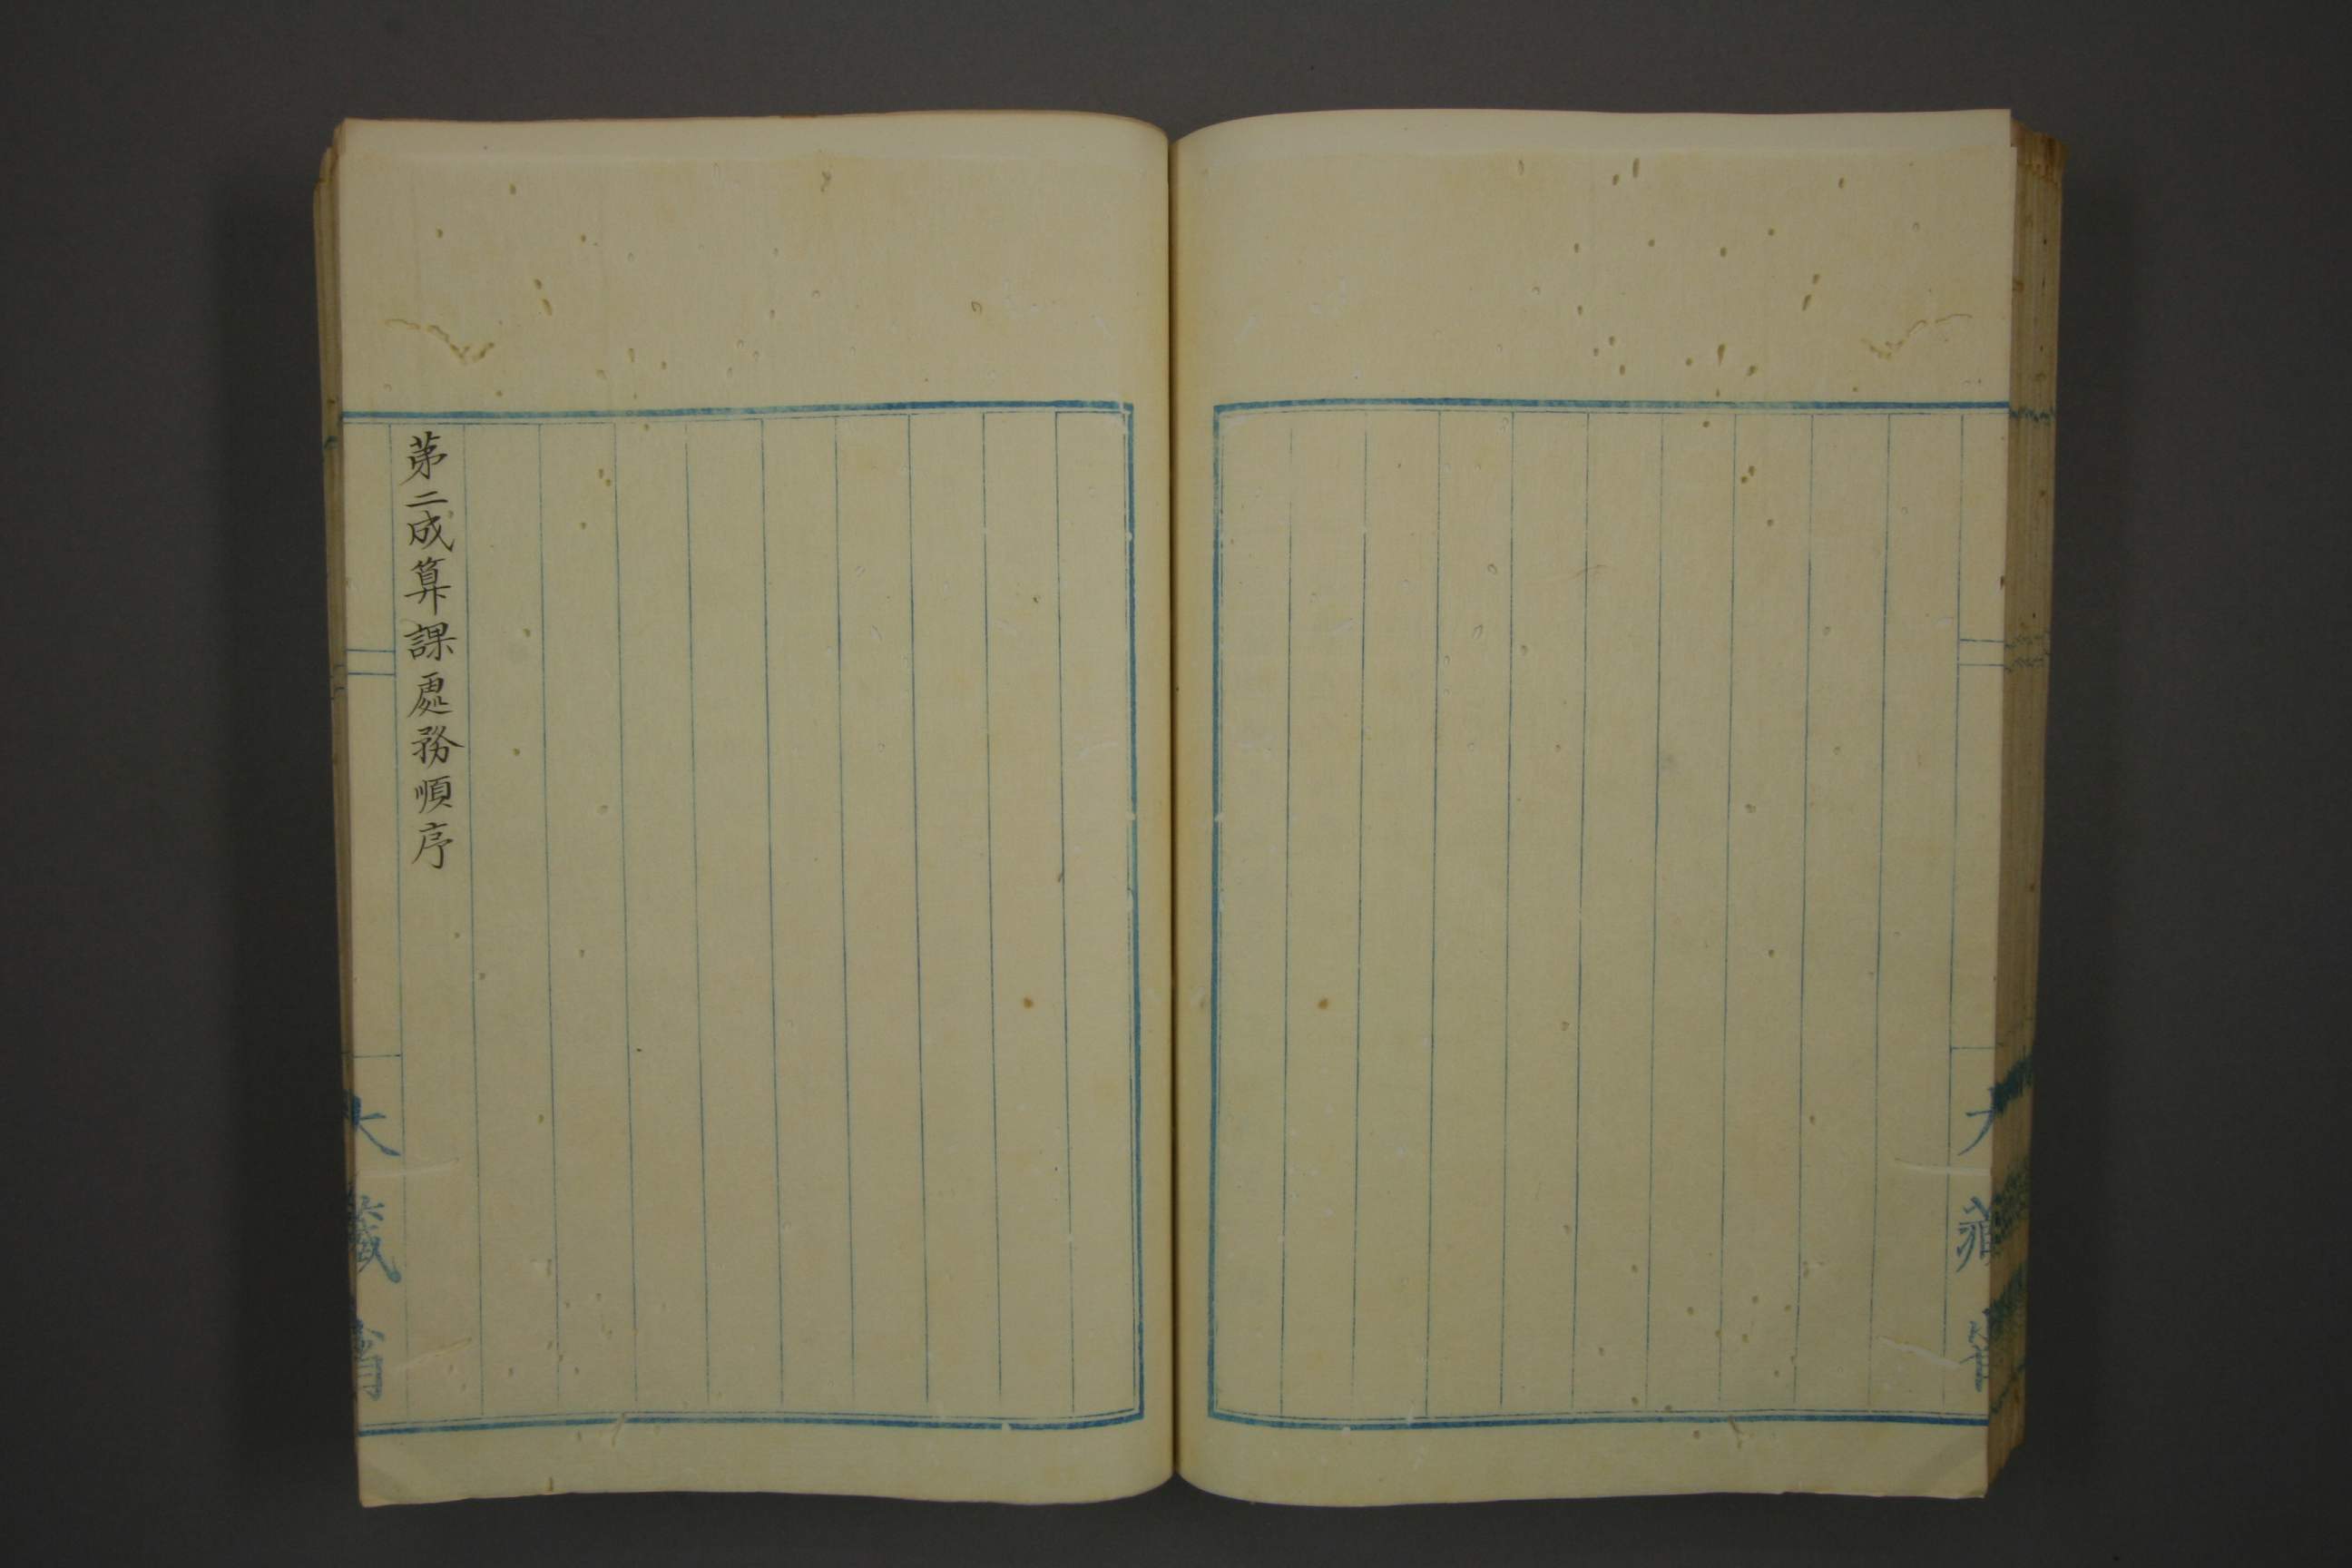 大藏省
第二成算課處務順序
大藏省